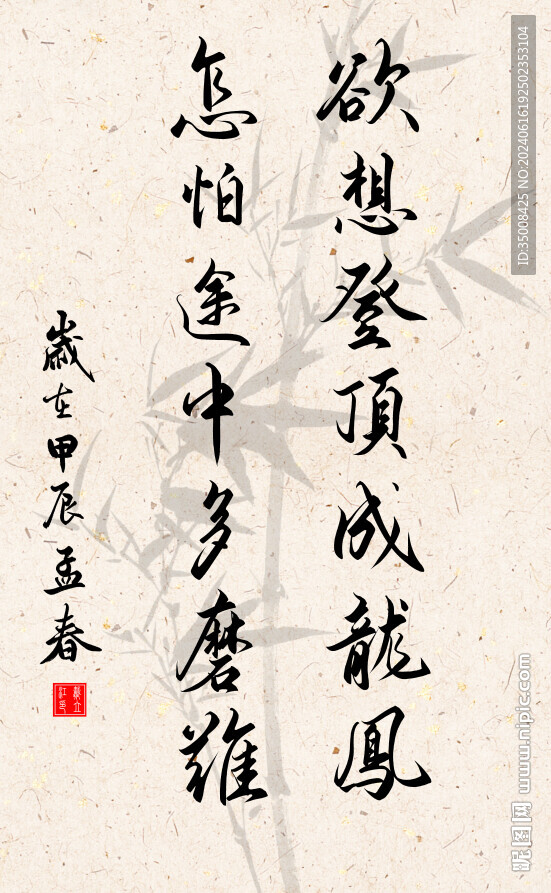 欲想登頂成龍鳳
怎怕途中多磨難
歲在甲辰孟春
ID:35008425 NO:20240616192502353104
昵图网 www.nipic.com